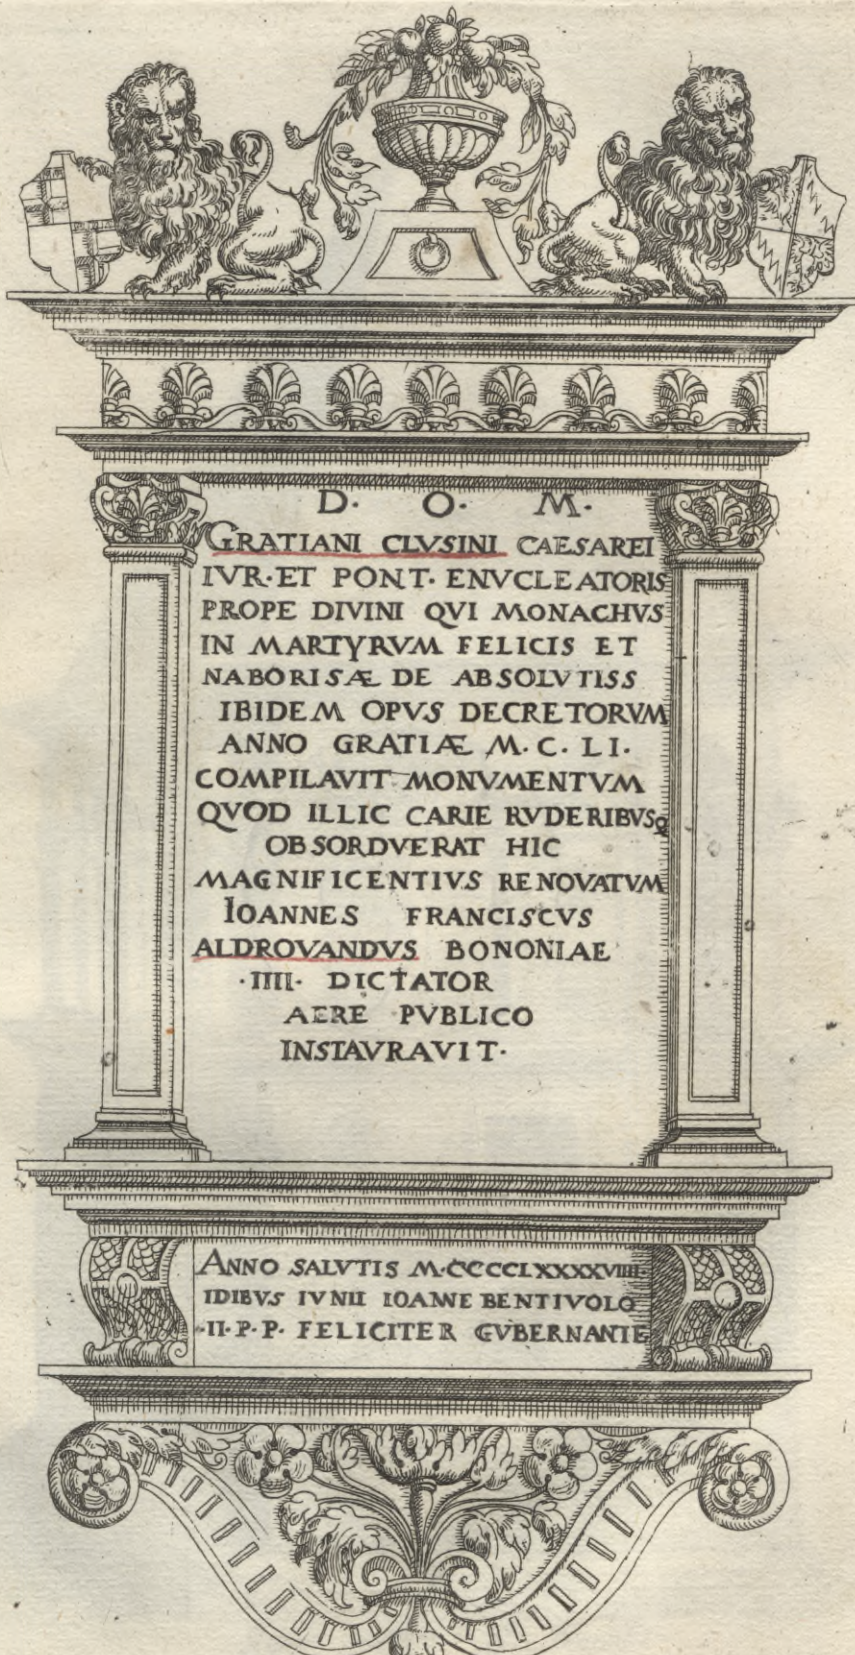 D. O. M.
GRATIANI CLVSINI CAESAREI
IVR. ET PONT. ENVCLEATORIS
PROPE DIVINI QVI MONACHVS
IN MARTYRVM FELICIS ET
NABORIS ÆDE ABSOLVTISS
IBIDEM OPVS DECRETORVM
ANNO GRATIÆ M. C. LI.
COMPILAVIT MONVMENTVM
QVOD ILLIC CARIE RVDERIBVSQ
OBSORDVERAT HIC
MAGNIFICENTIVS RENOVATVM
IOANNES FRANCISCVS
ALDROVANDVS BONONIAE
·IIII· DICTATOR
AERE PVBLICO
INSTAVRAVIT.
ANNO SALVTIS M·CCCCLXXXXVIIII·
IDIBVS IVNII IOANNE BENTIVOLO
·II·P·P· FELICITER GVBERNANTE